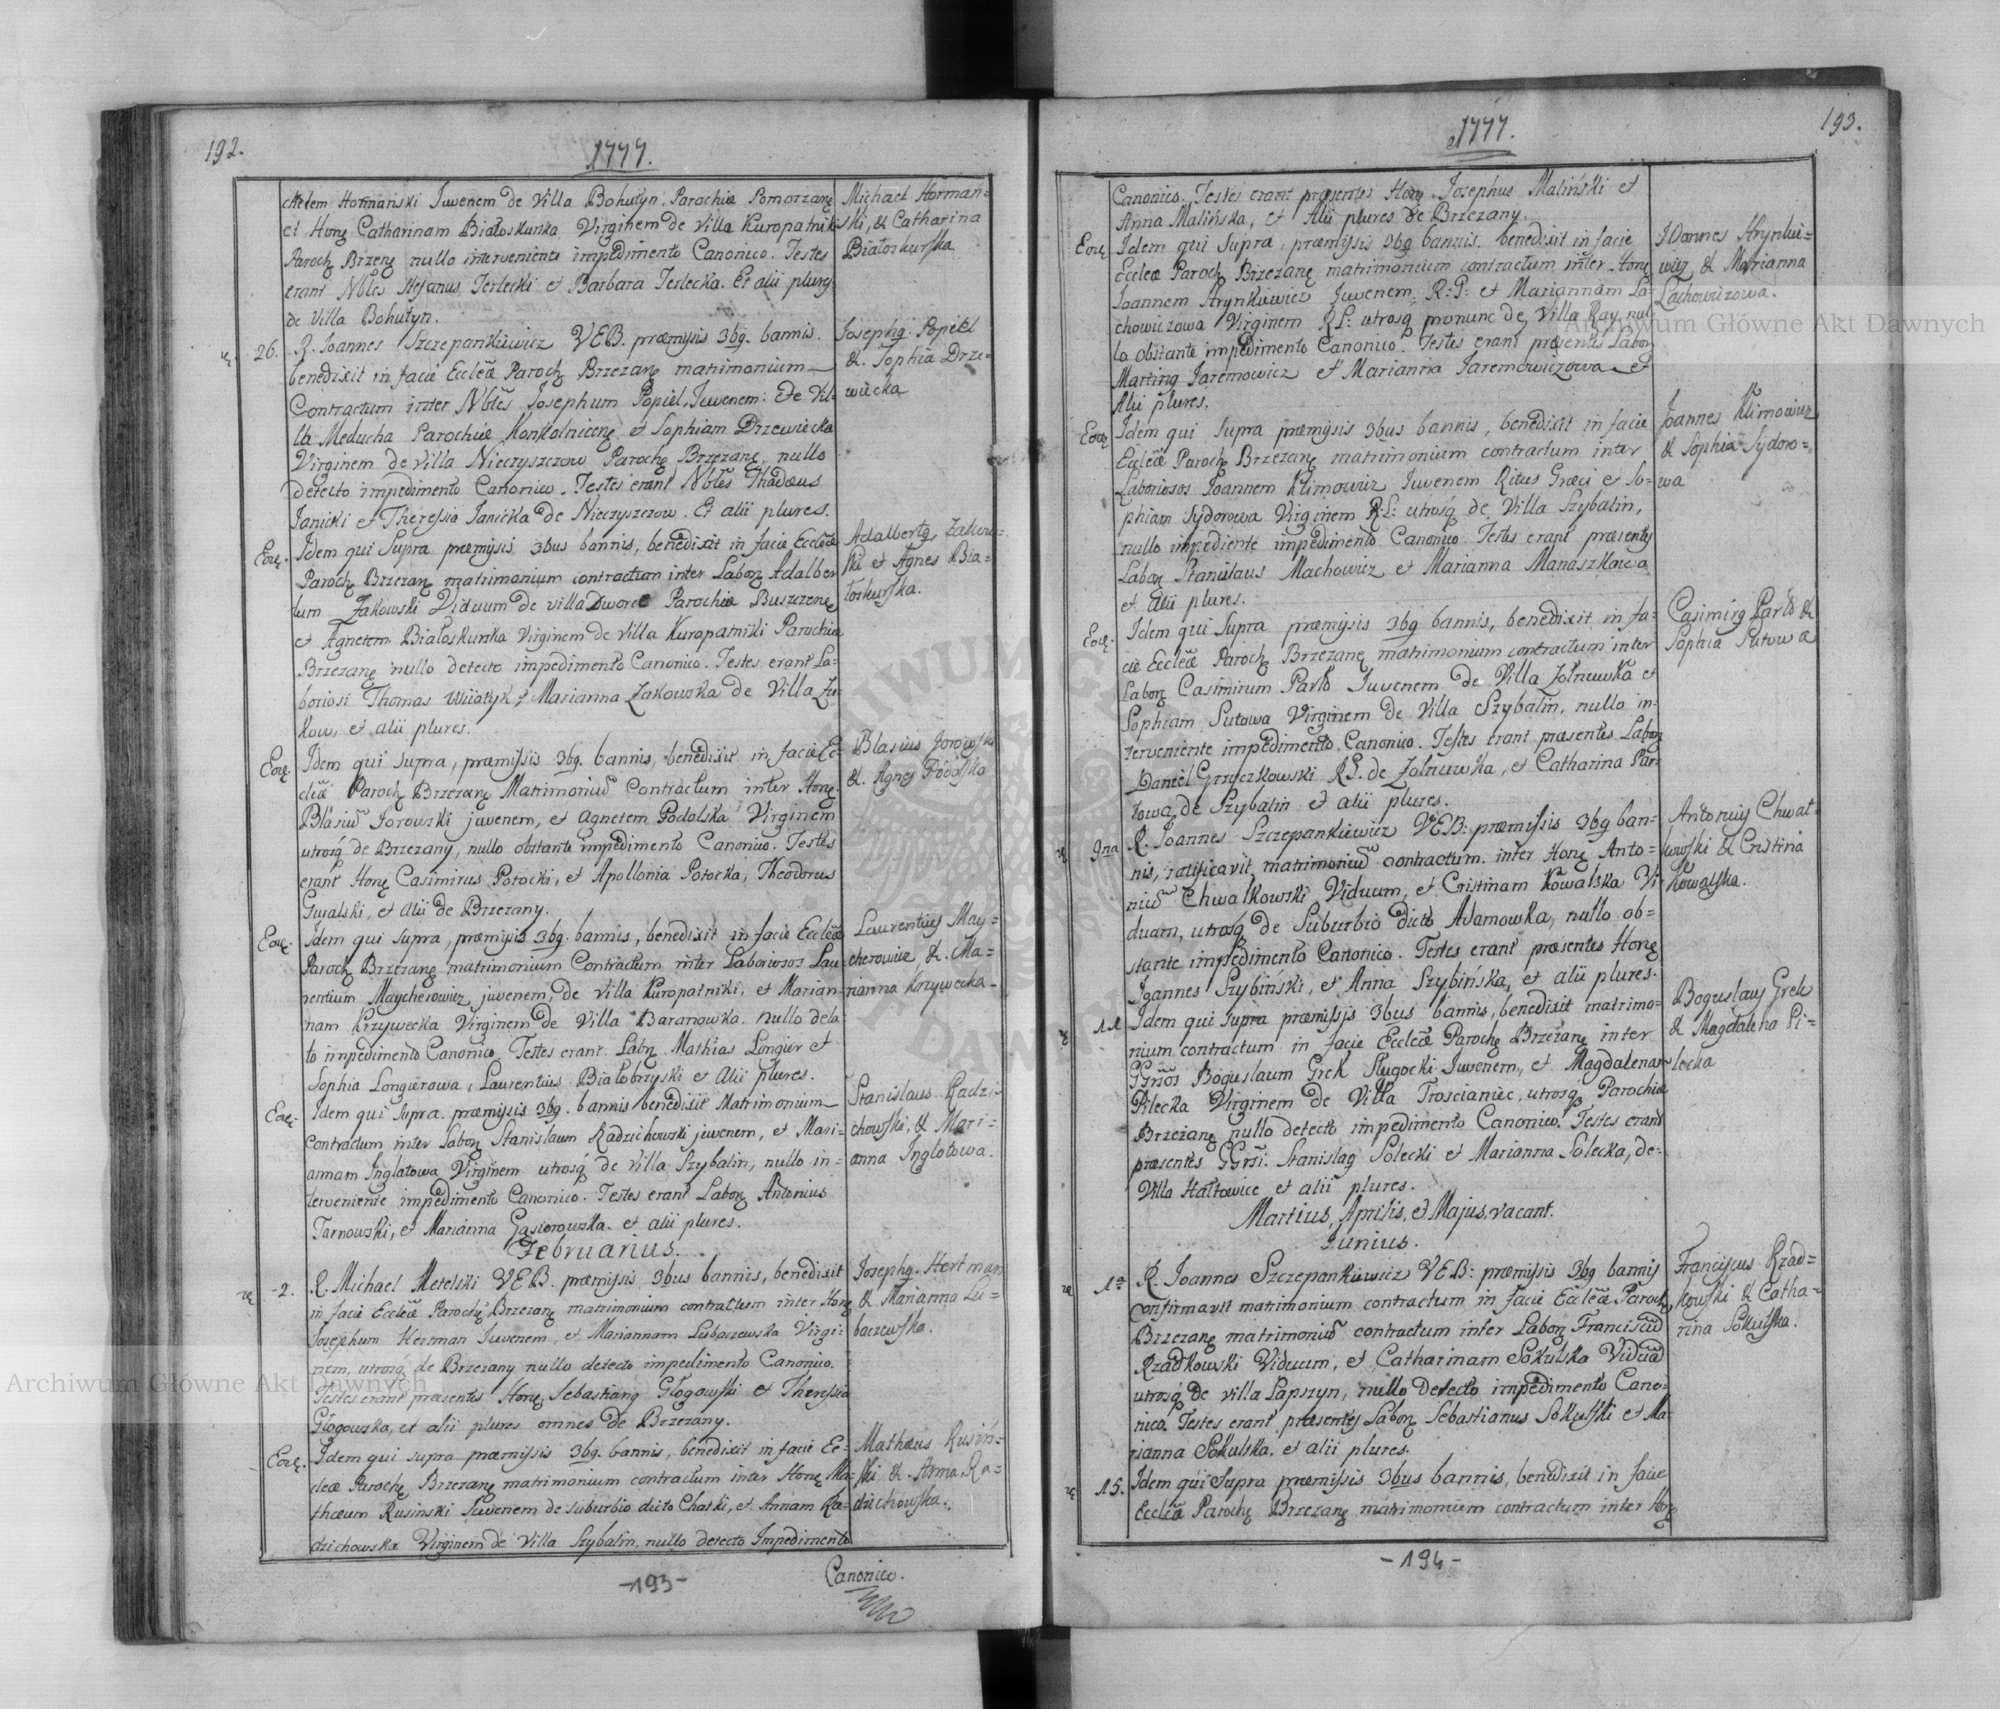 192.
1777.
chelem Hormański Juvenem de Villa Bohutyn, Parochiæ Pomorzanę
et Honę Catharinam Białoskurka Virginem de Villa Kuropatnik
Paroch Brzenę nullo interveniente impedimento Canonico. Testes
erant Nbles Stefanus Terlecki et Barbara Terlecka. Et alii plures
de Villa Bohutyn.
Michael Horman=
ski, & Catharina
Białoskurska
26. R. Joannes Szczepankiewicz VEB. præmysis 3bg. bannis.
benedixit in facie Eccleæ Paroch Brzezanę matrimonium
Contractum inter Nbles Josephum Popiel Juvenem: De Vil-
la Meducha Parochiæ Konkolnicenę et Sophiam Drzewiecka
Virginem de villa Nieczyszczow Parochę Brzezanę, nullo
detecto impedimento Canonico. Testes erant Nbles Thadæus
Janicki et Theressia Janicka de Nieczyszczow. Et alii plures.
Josephg Popiel
& Sophia Drze=
wiecka
Eoȩ. Idem qui Supra præmysis 3bus bannis, benedixit in facie Eccleæ
Paroch Brzezanę matrimonium contractum inter Laborę Adalber
tum Zakowski Viduum de villa Dworce Parochiæ Buszczenę
et Agnetem Białoskurka Virginem de villa Kuropatniki Parochiæ
Brzezanę nullo detecto impedimento Canonico. Testes erant La-
boriosi Thomas Wiiatyk et Marianna Zakowska de Villa Zu-
kow, et alii plures.
Adalbertg Zakow=
ski et Agnes Bia=
łoskurska.
Eoȩ. Idem qui supra, præmissis 3bg. bannis, benedixit in facie Ec-
cleæ Paroch Brzezanę Matrimoniū Contractum inter Honę
Blasiū Jorowski juvenem, et Agnetem Podolska Virginem
utrosq de Brzezany, nullo obstante impedimento Canonico. Testes
erant Honę Casimirus Potocki, et Apollonia Potocka, Theodorus
Guralski, et Alii de Brzezany.
Blasius Jorowski
& Agnes Podolska
Eoȩ. Idem qui supra, præmysis 3bg. bannis, benedixit in facie Eccleæ
Paroch Brzezanę matrimonium Contractum inter Laboriosos Lau
rentium Maycherowicz juvenem, de villa Kuropatniki, et Marian-
nam Krzywecka Virginem de Villa Baranowka. Nullo dela
to impedimento Canonico. Testes erant Labrę Mathias Longier et
Sophia Longierowa, Laurentius Białobrzyski et Alii plures.
Laurentius May=
cherowicz &. Ma=
rianna Krzywecka
Eoȩ. Idem qui supra. præmysis 3bg. bannis benedixit Matrimonium
contractum inter Laborę Stanislaum Radzichowski juvenem, et Mari-
annam Inglatowa Virginem utrosq de villa Szybalin, nullo in-
terveniente impedimento Canonico. Testes erant Laborę Antonius
Tarnowski, et Marianna Gąsiorowska. et alii plures.
Stanislaus Radzi-
chowski, & Mari-
anna Inglotowa.
Februarius.
2. R. Michael Metelski VEB. præmysis 3bus bannis, benedixit
in facie Eccleæ Parochę Brzezanę matrimonium contractum inter Honę
Josephum Hertman Juvenem, et Mariannam Lubaczewska Virgi-
nem, utrosq de Brzezany nullo detecto impedimento Canonico.
Testes erant præsentes Honę Sebastiang Głogowski et Theressia
Głogowska, et alii plures omnes de Brzezany.
Josephg. Hertman
& Marianna Lu=
baczewska.
Eoȩ. Idem qui supra præmyssis 3bg. bannis, benedixit in facie Ec-
cleæ Parochę Brzezanę matrimonium contractum inter Honę Ma-
thæum Rusinski Juvenem de suburbio dicto Chatki, et Annam Ra-
dzichowska Virginem de Villa Szybalin, nullo detecto Impedimento
Mathæus Rusiń=
ski &. Anna Ra=
dzichowska.
-193-
Canonico.
1777.
193.
Canonico. Testes erant præsentes Honę Josephus Maliński et
Anna Malińska, et Alii plures de Brzezany.
Eoȩ Idem qui Supra, præmysis 3bg bannis. benedixit in facie
Eccleæ Paroch Brzezanę matrimonium contractum inter Honę
Joannem Hrynkiewicz Juvenem, R: G: et Mariannam La-
chowiczowa Virginem R L: utrosq pronunc de Villa Ray, nul-
lo obstante impedimento Canonico. Testes erant præsentes Labor
Marting Jaremowicz et Marianna Jaremowiczowa et
Alii plures.
Ioannes Hrynkie=
wicz & Marianna
Lachowiczowa.
Eoȩ Idem qui supra præmysis 3bus bannis, benedixit in facie
Eccleæ Paroch Brzezanę matrimonium contractum inter
Laboriosos Joannem Klimowicz Juvenem Ritus Græci et So-
phiam Sydorowa Virginem R: L: utrosq de Villa Szybalin,
nullo impediente impedimento Canonico. Testes erant præsentes
Laborę Stanislaus Machowicz et Marianna Manaszkowa
et Alii plures.
Joannes Klimowicz
& Sophia Sydoro=
wa
Eoȩ. Idem qui Supra præmysis 3bg bannis, benedixit in fa-
cie Eccleæ Paroch Brzezanę matrimonium contractum inter
Laborę Casimirum Parło Juvenem de Villa Zołnuwka et
Sophiam Sutowa Virginem de Villa Szybalin, nullo in-
terveniente impedimento Canonico. Testes erant præsentes Laborę
Daniel Grzyczkowski R G. de Zolnuwka, et Catharina Par-
łowa, de Szybalin et alii plures.
Casimirg Parło &
Sophia Sutowa
9na R. Joannes Szczepankiewicz VEB: præmyssis 3bg ban-
nis, ratificavit matrimoniū contractum inter Honę Anto-
niū Chwałkowski Viduum, et Cristinam Kowalska Vi-
duam, utrosq de Suburbio dicto Adamowka, nullo ob-
stante impedimento Canonico. Testes erant præsentes Honę
Joannes Szybiński, et Anna Szybińska, et alii plures.
Antonius Chwał-
kowski & Cristina
Kowalska.
11. Idem qui supra præmissis 3bus bannis, benedixit matrimo-
nium contractum in facie Eccleæ Parochę Brzezanę inter
GGnōs Boguslaum Grek Sługocki Juvenem, et Magdalenam
Pilecka Virginem de Villa Troscianiec, utrosq Parochiæ
Brzezanę nullo detecto impedimento Canonico. Testes erant
præsentes GGnsi. Stanislag Solecki et Marianna Solecka, de-
Villa Hałtowice et alii plures.
Boguslaus Grek
& Magdalena Pi=
lecka
Martius, Aprilis, et Majus, vacant.
Junius.
1a R. Joannes Szczepankiewicz VEB: præmyssis 3bg bannis
confirmavit matrimonium contractum in facie Eccleæ Paroch
Brzezanę matrimoniū contractum inter Laborę Franciscū
Rzadkowski Viduum, et Catharinam Sokulska Viduā
utrosq de villa Łapszyn, nullo detecto impedimento Cano-
nico. Testes erant præsentes Laborę Sebastianus Sokulski et Ma-
rianna Sokulska. et alii plures.
Franciscus Rzad=
kowski & Catha=
rina Sokulska.
15. Idem qui Supra præmissis 3bus bannis, benedixit in facie
Eccleæ Parochę Brzezanę matrimonium contractum inter Honę
-194-
Archiwum Główne Akt Dawnych
Archiwum Główne Akt Dawnych